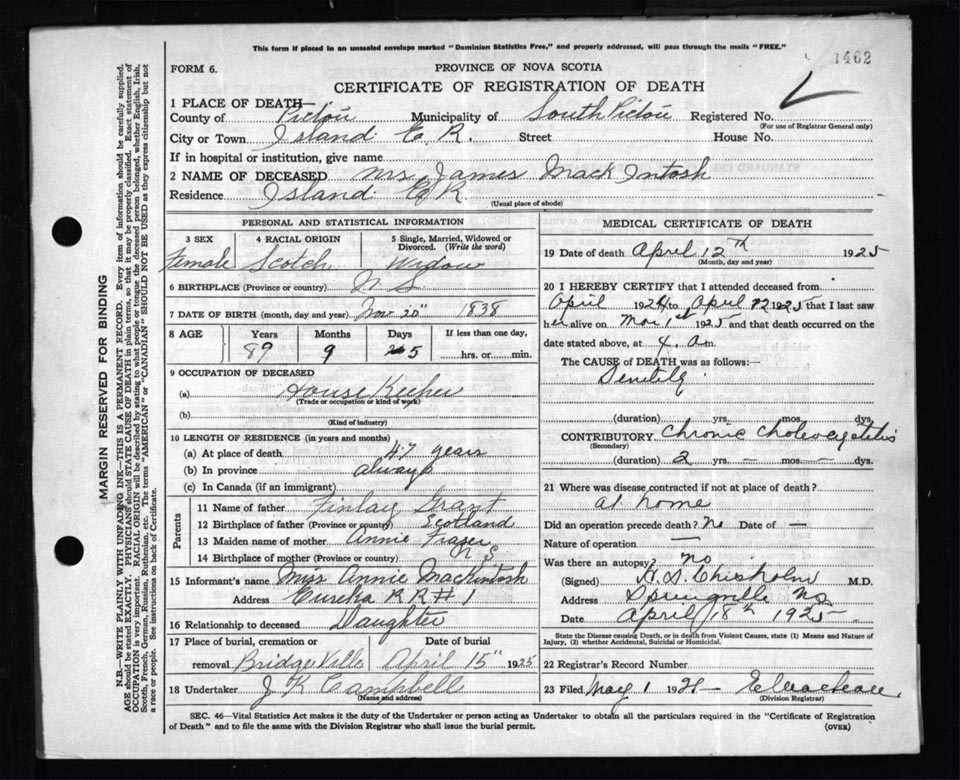 This form if placed in an unsealed envelope marked "Dominion Statistics Free," and properly addressed, will pass through the mails "FREE."
1462
FORM 6.
PROVINCE OF NOVA SCOTIA
CERTIFICATE OF REGISTRATION OF DEATH
1 PLACE OF DEATH—
County of Pictou Municipality of South Pictou Registered No.
(For use of Registrar General only)
City or Town Island E. R. Street House No.
If in hospital or institution, give name
2 NAME OF DECEASED Mrs James MackIntosh
Residence Island E R
(Usual place of abode)
PERSONAL AND STATISTICAL INFORMATION
3 SEX 4 RACIAL ORIGIN 5 Single, Married, Widowed or Divorced. (Write the word)
Female Scotch Widow
6 BIRTHPLACE (Province or country) N. S.
7 DATE OF BIRTH (month, day and year) 20" 1838
8 AGE Years Months Days If less than one day,
89 9 5 hrs. or min.
9 OCCUPATION OF DECEASED
(a) House Keeper
(Trade or occupation or kind of work)
(b)
(Kind of industry)
10 LENGTH OF RESIDENCE (in years and months)
(a) At place of death 47 years
(b) In province always
(c) In Canada (if an immigrant)
Parents
11 Name of father Finlay Grant
12 Birthplace of father (Province or country) Scotland
13 Maiden name of mother Annie Fraser
14 Birthplace of mother (Province or country) N S
15 Informant's name Miss Annie Mackintosh
Address Eureka R R # 1
16 Relationship to deceased Daughter
17 Place of burial, cremation or removal Bridgeville
Date of burial April 15" 1925
18 Undertaker J K Campbell
(Name and address)
MEDICAL CERTIFICATE OF DEATH
19 Date of death April 12th 1925
(Month, day and year)
20 I HEREBY CERTIFY that I attended deceased from
April 1924 to April 12 1925 that I last saw
her alive on Mar 1st 1925 and that death occurred on the
date stated above, at 4. a.m.
The CAUSE of DEATH was as follows:
Senility
(duration) yrs. mos. dys.
CONTRIBUTORY Chronic cholecystitis
(Secondary)
(duration) 2 yrs. — mos. — dys.
21 Where was disease contracted if not at place of death?
at home
Did an operation precede death? No Date of —
Nature of operation —
Was there an autopsy? no
(Signed) Chisholm M.D.
Address Springville NS
Date April 18th 1925
State the Disease causing Death, or in death from Violent Causes, state (1) Means and Nature of
Injury, (2) whether Accidental, Suicidal or Homicidal.
22 Registrar's Record Number
23 Filed May 1 19
(Division Registrar)
SEC. 46—Vital Statistics Act makes it the duty of the Undertaker or person acting as Undertaker to obtain all the particulars required in the "Certificate of Registration
of Death" and to file the same with the Division Registrar who shall issue the burial permit.
(OVER)
MARGIN RESERVED FOR BINDING
N.B.—WRITE PLAINLY WITH UNFADING INK—THIS IS A PERMANENT RECORD. Every item of information should be carefully supplied.
AGE should be stated EXACTLY. PHYSICIANS should STATE CAUSE OF DEATH in plain terms, so that it may be properly classified. Exact statement of
OCCUPATION is very important. RACIAL ORIGIN will be described by stating to what people or tongue the deceased person belonged, whether English, Irish,
Scotch, French, German, Russian, Ruthenian, etc. The terms "AMERICAN" or "CANADIAN" SHOULD NOT BE USED as they express citizenship but not
a race or people. See instructions on back of Certificate.